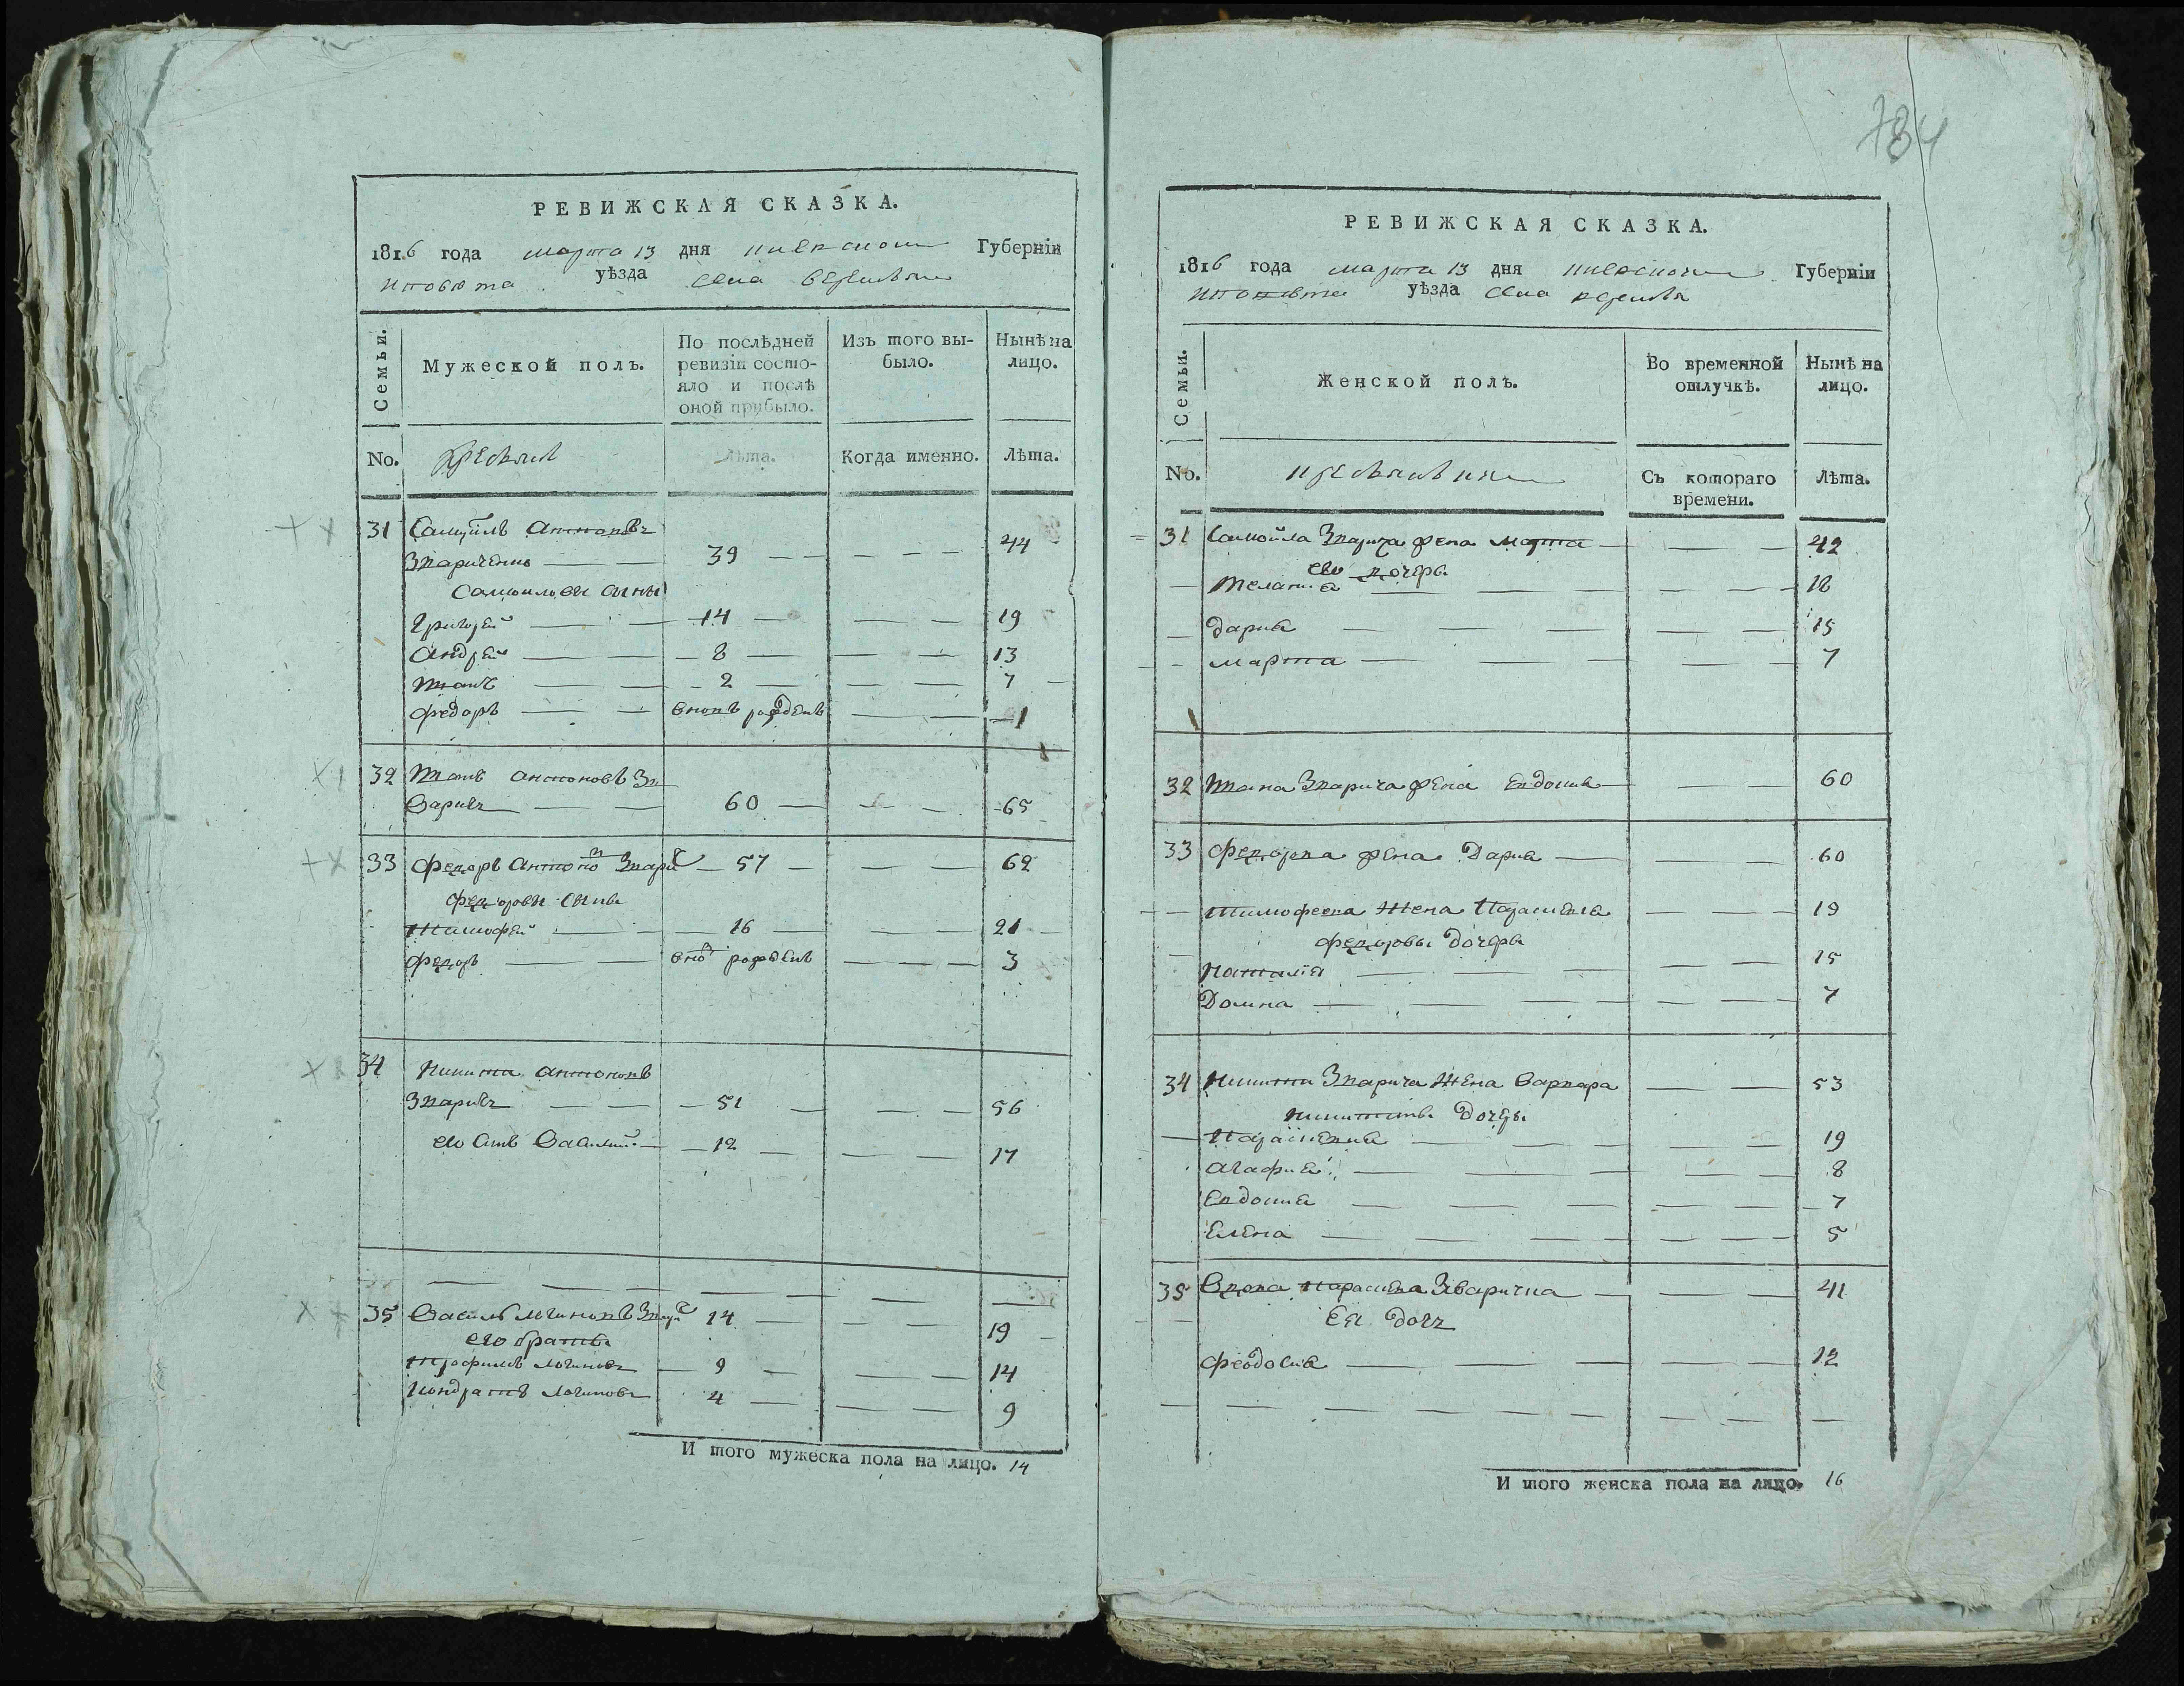 РЕВИЖСКАЯ СКАЗКА.
1816 года марта 13 дня Губерніи
уѣзда села
Семьи.
Мужеской полъ.
По послѣдней ревизіи состо-
яло и послѣ
оной прибыло.
Изъ того вы-
было.
Нынѣ на
лицо.
No.
Лѣта. Когда именно. Лѣта.
31 Самуйлъ Антоновъ
Зваричъ — — 39 — — — — — 44
Самойловы сыны
Григорей — — 14 — — — 19
Андрей — — 8 — — — 13
Иванъ — — 2 — — — 7
Федоръ — — вновь рожденъ — — 1
32 Иванъ Антоновъ Зв
варичъ — — 60 — — — 65
33 Федоръ Антонов Зварич — 57 — — — 62
Федоровы сыны
Тимофей — — 16 — — — 21
Федоръ — — внов рожденъ — — — 3
34 Никита Антоновъ
Зваричъ — — 51 — — — 56
его сынъ Василий — 12 — — — 17
35 Василь Логиновъ Зварич 14 — — — 19
его братья
Трофимъ Логиновъ — 9 — — — 14
Кондратъ Логиновъ 4 — — — 9
И того мужеска пола на лицо. 14
784
РЕВИЖСКАЯ СКАЗКА.
1816 года марта 13 дня Губерніи
уѣзда села
Семьи.
Женской полъ.
Во временной
отлучкѣ.
Нынѣ на
лицо.
No.
Съ котораго
времени.
Лѣта.
31 Самойла Зварича жена Марта — — — 42
его дочери
Мелания — — — 18
Дария — — — 15
Марта — — — 7
32 Ивана Зварича жена Евдокия — — — 60
33 Федорова жена Дария — — — 60
Тимофеева жена Параскева — — 19
Федоровы дочери
Наталия — — — 15
Домна — — — 7
34 Никити Зварича жена Варвара — — 53
дочери
Параскевия — — — 19
Агафия — — — 8
Евдокия — — — 7
Елена — — — 5
35 Вдова Параскева Зваричка — — — 41
Ея дочь
Феодосия — — — 12
И того женска пола на лицо. 16